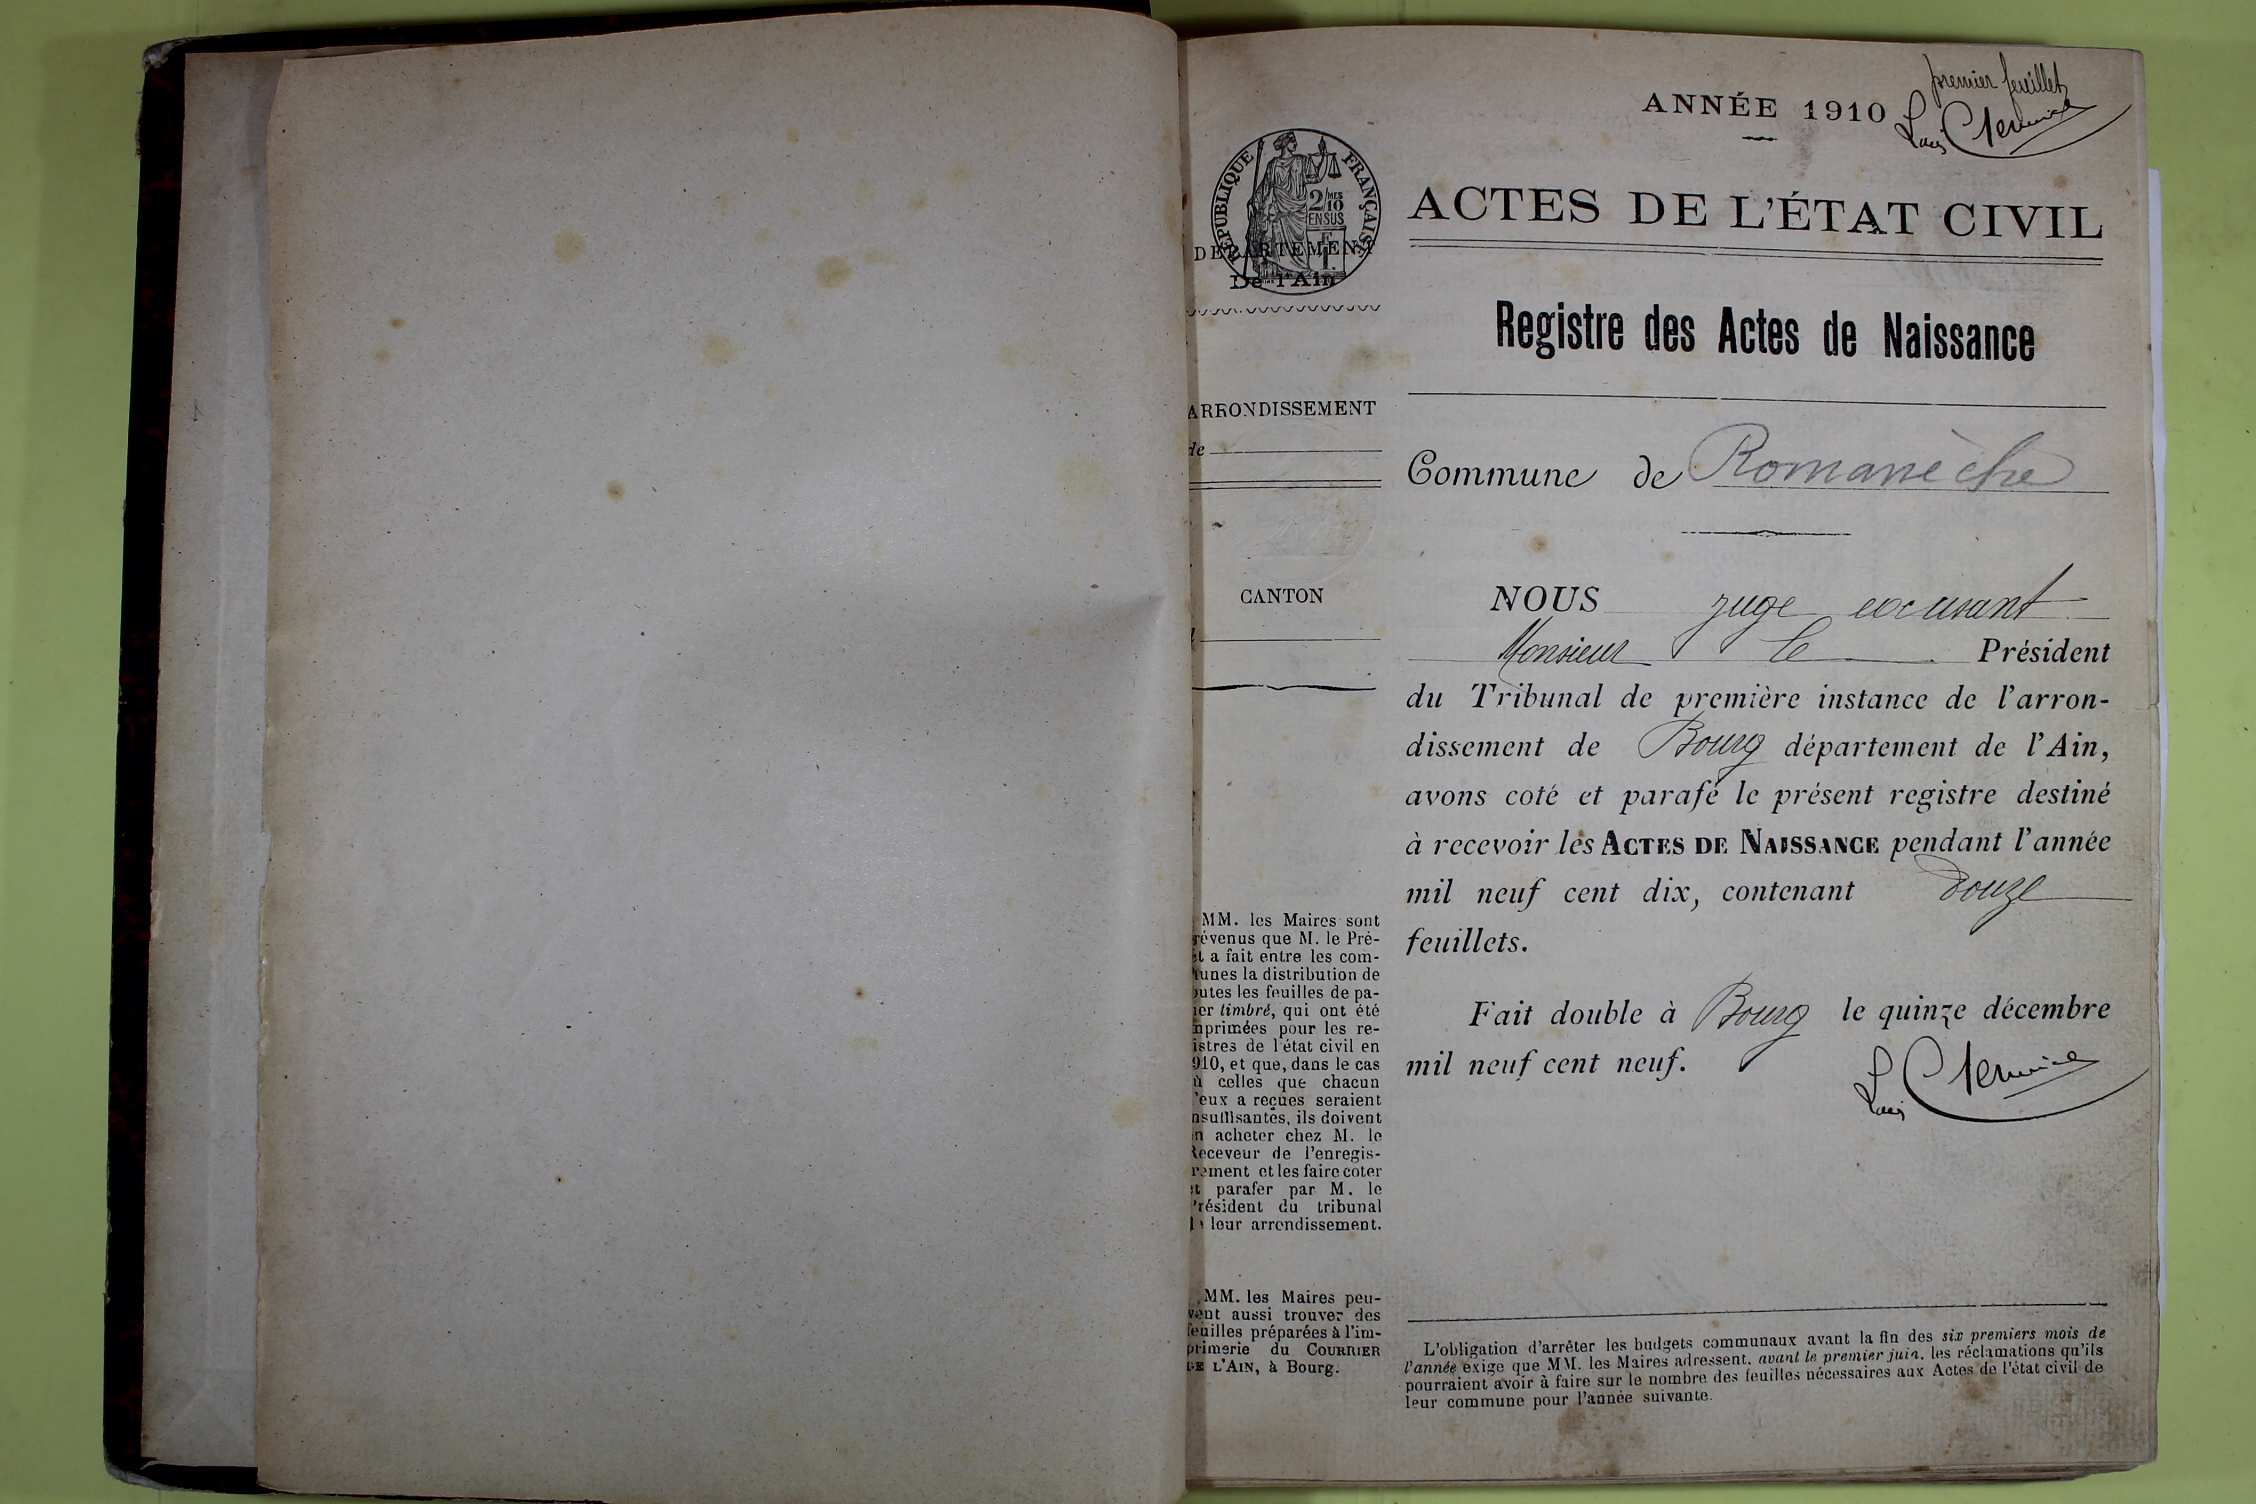 ANNÉE 1910
premier feuillet
RÉPUBLIQUE FRANÇAISE
2/10
MES
EN SUS
ACTES DE L'ÉTAT CIVIL
DÉPARTEMENT
De l'Ain
Registre des Actes de Naissance
ARRONDISSEMENT
de
Commune de Romanèche
CANTON
NOUS juge excusant
Monsieur le Président
du Tribunal de première instance de l'arron-
dissement de Bourg département de l'Ain,
avons coté et parafé le présent registre destiné
à recevoir les ACTES DE NAISSANCE pendant l'année
mil neuf cent dix, contenant douze
feuillets.
Fait double à Bourg le quinze décembre
mil neuf cent neuf.
MM. les Maires sont
révenus que M. le Pré-
et a fait entre les com-
unes la distribution de
outes les feuilles de pa-
ier timbré, qui ont été
mprimées pour les re-
istres de l'état civil en
910, et que, dans le cas
ù celles que chacun
'eux a reçues seraient
nsuffisantes, ils doivent
n acheter chez M. le
Receveur de l'enregis-
rement et les faire coter
et parafer par M. le
Président du tribunal
leur arrondissement.
MM. les Maires peu-
vent aussi trouver des
feuilles préparées à l'im-
primerie du COURRIER
DE L'AIN, à Bourg.
L'obligation d'arrêter les budgets communaux avant la fin des six premiers mois de
l'année exige que MM. les Maires adressent, avant le premier juin, les réclamations qu'ils
pourraient avoir à faire sur le nombre des feuilles nécessaires aux Actes de l'état civil de
leur commune pour l'année suivante.